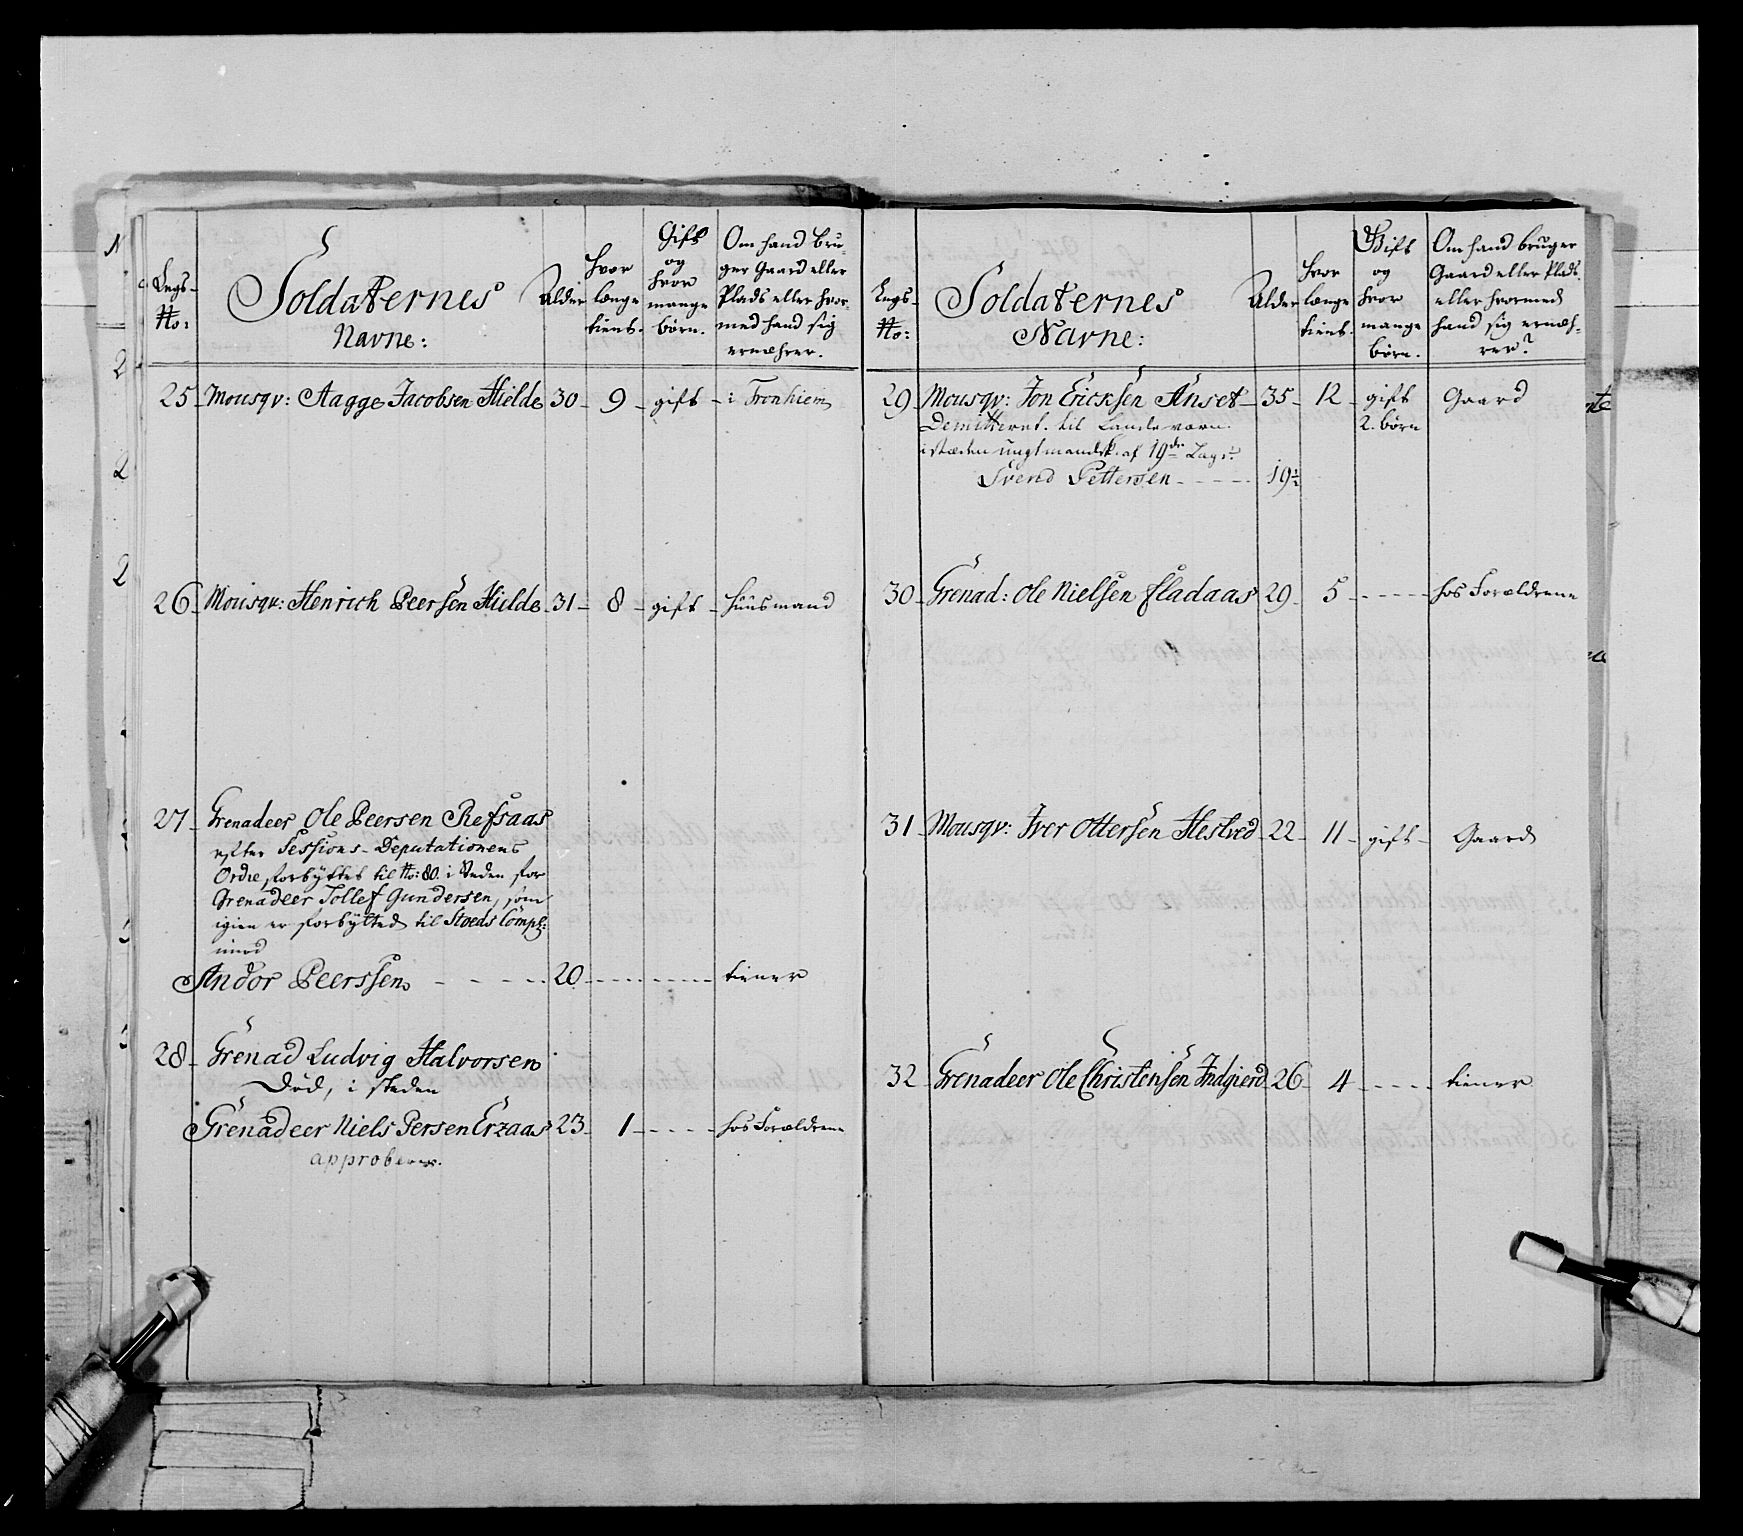 Legs-
No:
Soldaternes
Navne:
Alder
hvor
længe
tient.
Gift
og
hvor
mange
børn.
Om hand bru-
ger Gaard eller
Plads eller hvor-
med hand sig
ernæhrer.
25 Mousqv: Aagge Jacobsen Hielde 30 9 gift i Tronhiem
26 Mousqv: Henrich Peersen Hielde 31 8 gift Huusmand
27 Grenadeer Ole Peersen Refsaas
efter Sessions-Deputationens
Ordre forbyttes til No: 80. i Steden for
Grenadeer Tollef Gundersen, som
igien er forbytted til Stoeds Comp:
med
Andor Peerssen 20 tiener
28 Grenad Ludvig Halvorsen
Død, i steden
Grenadeer Niels Persen Erzaas 23 1 hos Forældrene
approberes.
Legs-
No:
Soldaternes
Navne:
Alder
hvor
længe
tient.
Gift
og
hvor
mange
børn.
Om hand bruger
Gaard eller Plads.
eller hvormed
hand sig ernæh-
rer?
29 Mousqv: Jon Ericksen Anset 35 12 gift Gaard
Demitteret. til Landeværn. 2. børn
istæden ungt mandsk. af 19de Lægd
Svend Pettersen 19½
30 Grenad: Ole Nielsen Fladaas 29 5 hos Forældrene
31 Mousqv: Iver Ottersen Hestved 22 11 gift Gaard
32 Grenadeer Ole Christensen Indgierd 26 4 tiener